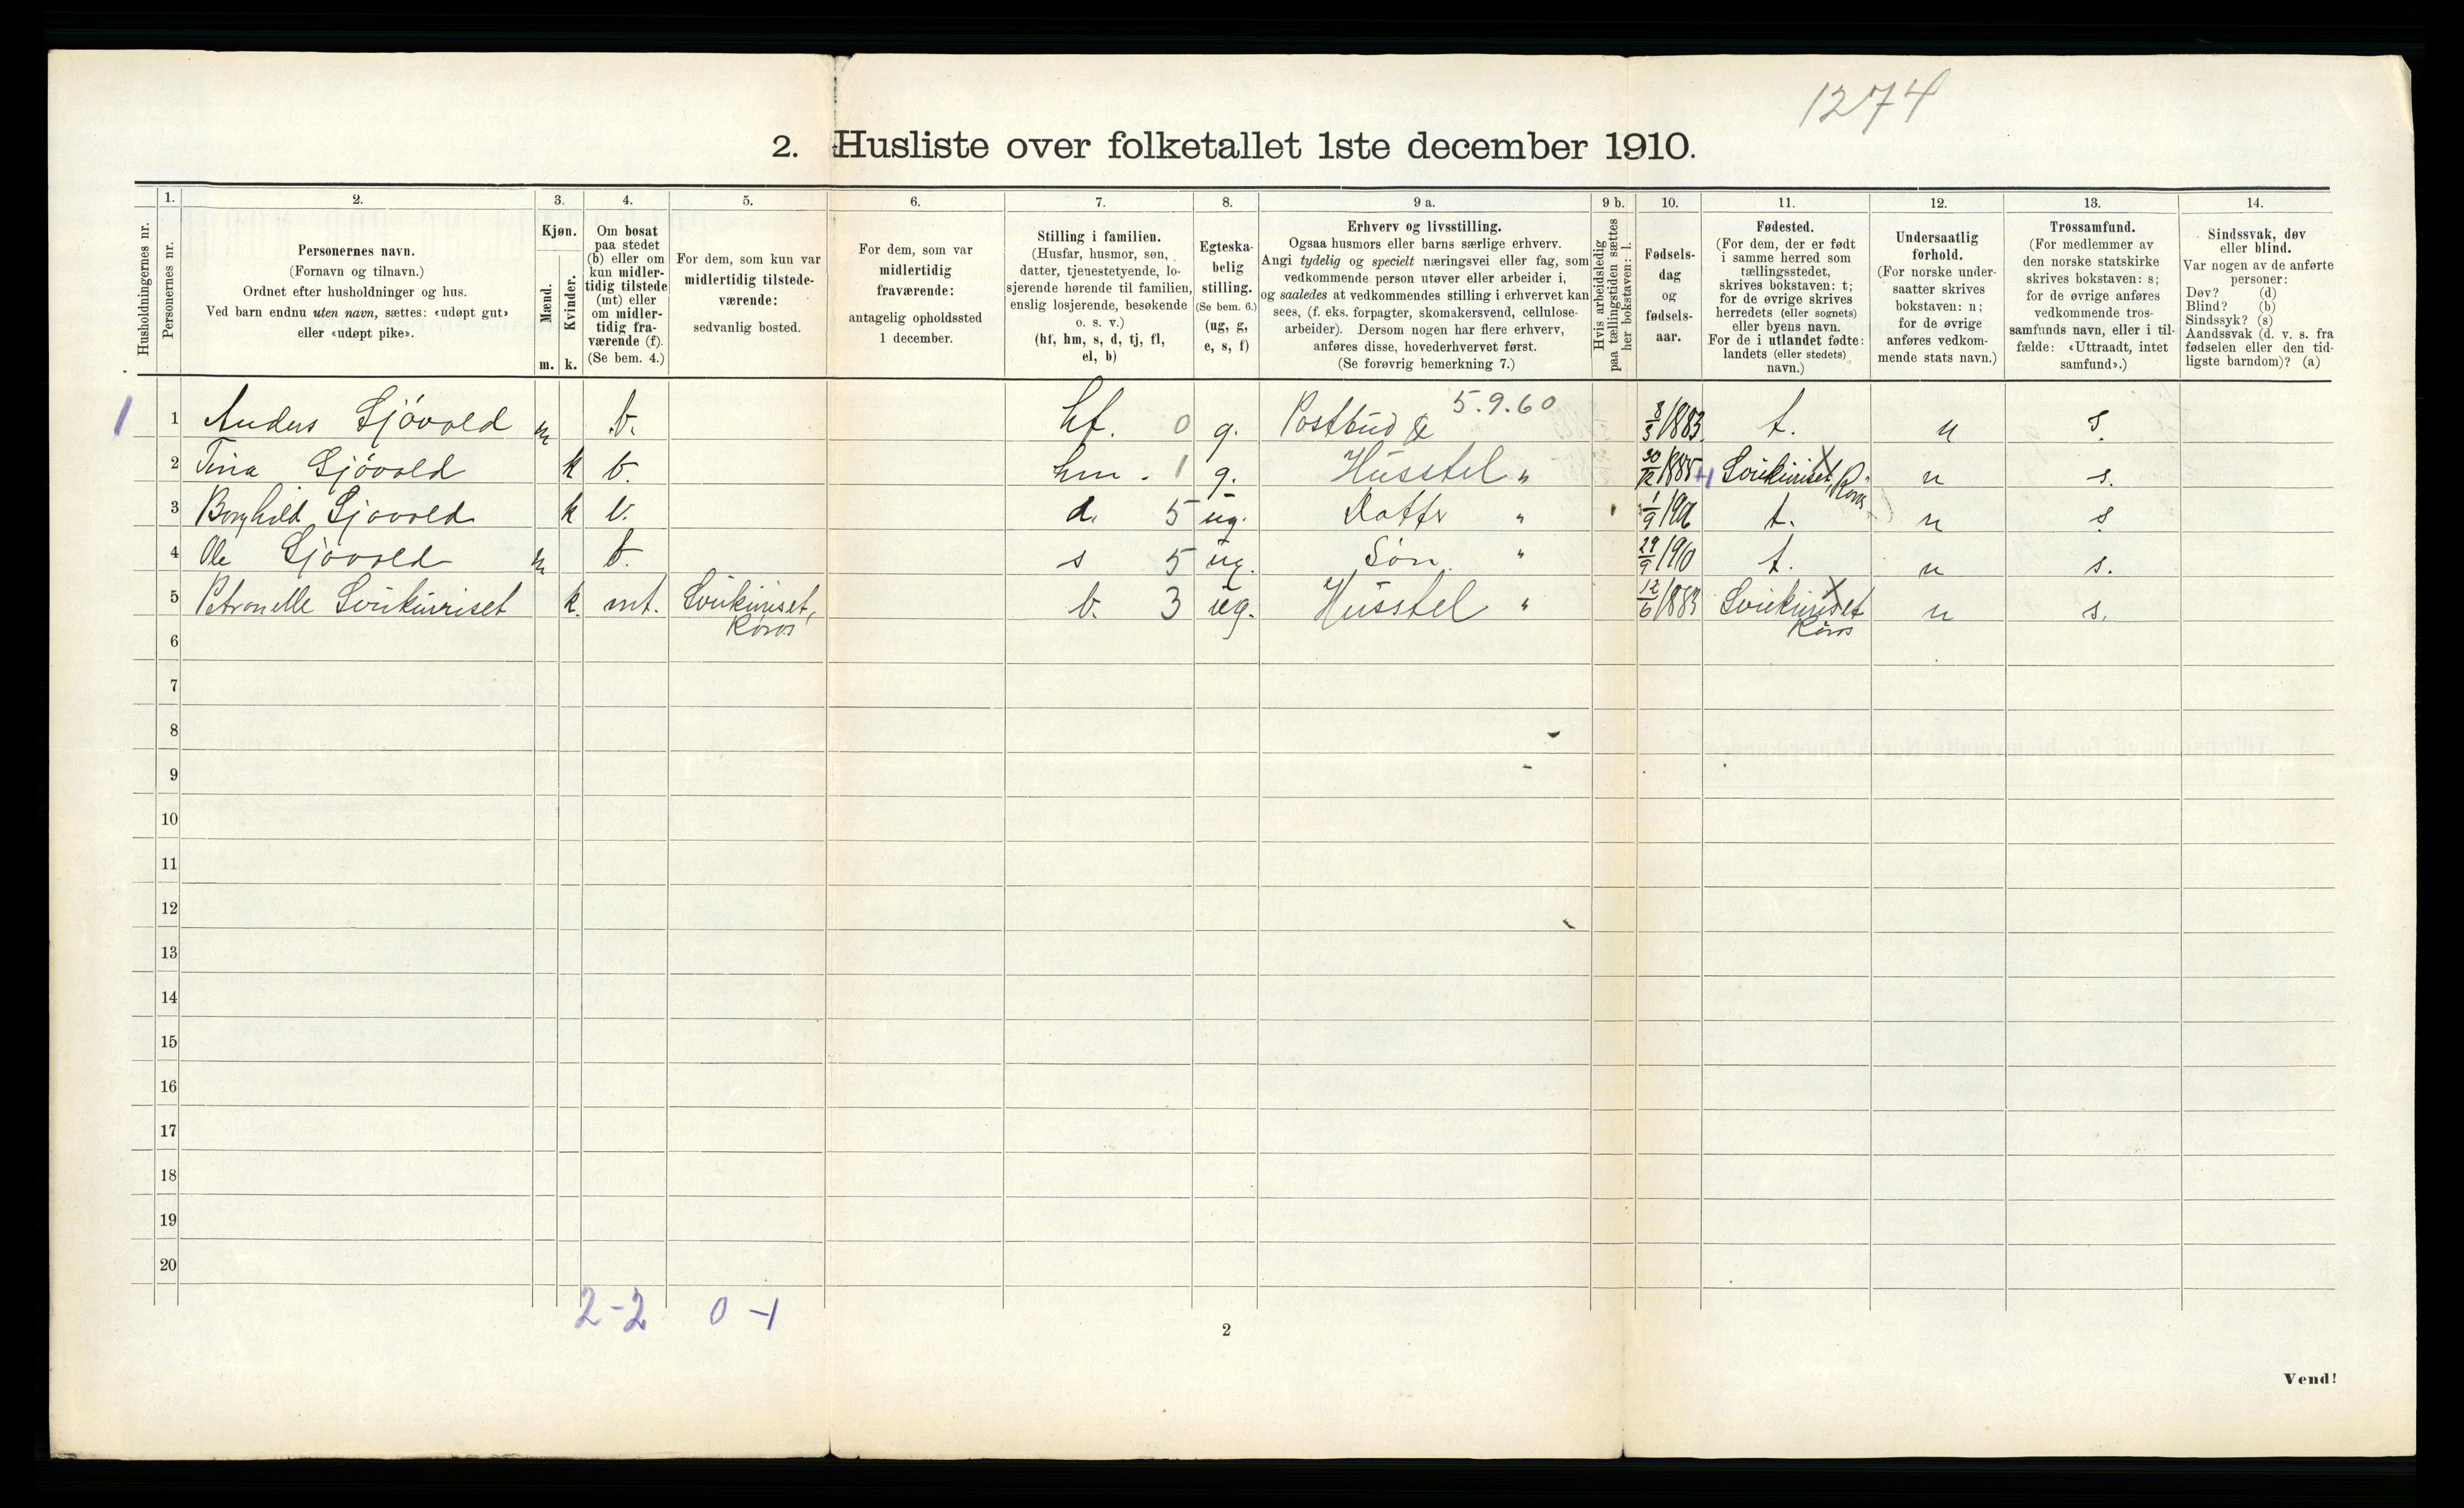 1274
2. Husliste over folketallet 1ste december 1910.
Husholdningernes nr.
1.
Personernes nr.
2.
Personernes navn.
(Fornavn og tilnavn.)
Ordnet efter husholdninger og hus.
Ved barn endnu uten navn, sættes: «udøpt gut»
eller «udøpt pike».
3.
Kjøn.
Mænd.
Kvinder.
m. k.
4.
Om bosat
paa stedet
(b) eller om
kun midler-
tidig tilstede
(mt) eller
om midler-
tidig fra-
værende (f).
(Se bem. 4.)
5.
For dem, som kun var
midlertidig tilstede-
værende:
sedvanlig bosted.
6.
For dem, som var
midlertidig
fraværende:
antagelig opholdssted
1 december.
7.
Stilling i familien.
(Husfar, husmor, søn,
datter, tjenestetyende, lo-
sjerende hørende til familien,
enslig losjerende, besøkende
o. s. v.)
(hf, hm, s, d, tj, fl,
el, b)
8.
Egteska-
belig
stilling.
(Se bem. 6.)
(ug, g,
e, s, f)
9 a.
Erhverv og livsstilling.
Ogsaa husmors eller barns særlige erhverv.
Angi tydelig og specielt næringsvei eller fag, som
vedkommende person utøver eller arbeider i,
og saaledes at vedkommendes stilling i erhvervet kan
sees, (f. eks. forpagter, skomakersvend, cellulose-
arbeider). Dersom nogen har flere erhverv,
anføres disse, hovederhvervet først.
(Se forøvrig bemerkning 7.)
9 b.
Hvis arbeidsledig
paa tællingstiden sættes
her bokstaven: l.
10.
Fødsels-
dag
og
fødsels-
aar.
11.
Fødested.
(For dem, der er født
i samme herred som
tællingsstedet,
skrives bokstaven: t;
for de øvrige skrives
herredets (eller sognets)
eller byens navn.
For de i utlandet fødte:
landets (eller stedets)
navn.)
12.
Undersaatlig
forhold.
(For norske under-
saatter skrives
bokstaven: n;
for de øvrige
anføres vedkom-
mende stats navn.)
13.
Trossamfund.
(For medlemmer av
den norske statskirke
skrives bokstaven: s;
for de øvrige anføres
vedkommende tros-
samfunds navn, eller i til-
fælde: «Uttraadt, intet
samfund».)
14.
Sindssvak, døv
eller blind.
Var nogen av de anførte
personer:
Døv? (d)
Blind? (b)
Sindssyk? (s)
Aandssvak (d. v. s. fra
fødselen eller den tid-
ligste barndom)? (a)
5.9.60
1 1 Anders Sjövold m b. hf. 0 g. Postbud 8/3 1883 t. n s.
2 Tina Sjövold k b. hm. 1 g. Husstel " 30/12 1885 Röros n s.
3 Borghild Sjövold k b. d. 5 ug. Datter " 1/9 1906 t. n s.
4 Ole Sjövold m b. s 5 ug. Søn " 29/9 1910 t. n s.
5 Petronelle k. mt. b. 3 ug. Husstel " 12/6 1883 n s.
Röros Röros
6
7
8
9
10
11
12
13
14
15
16
17
18
19
20
2-2 0-1
2
Vend!